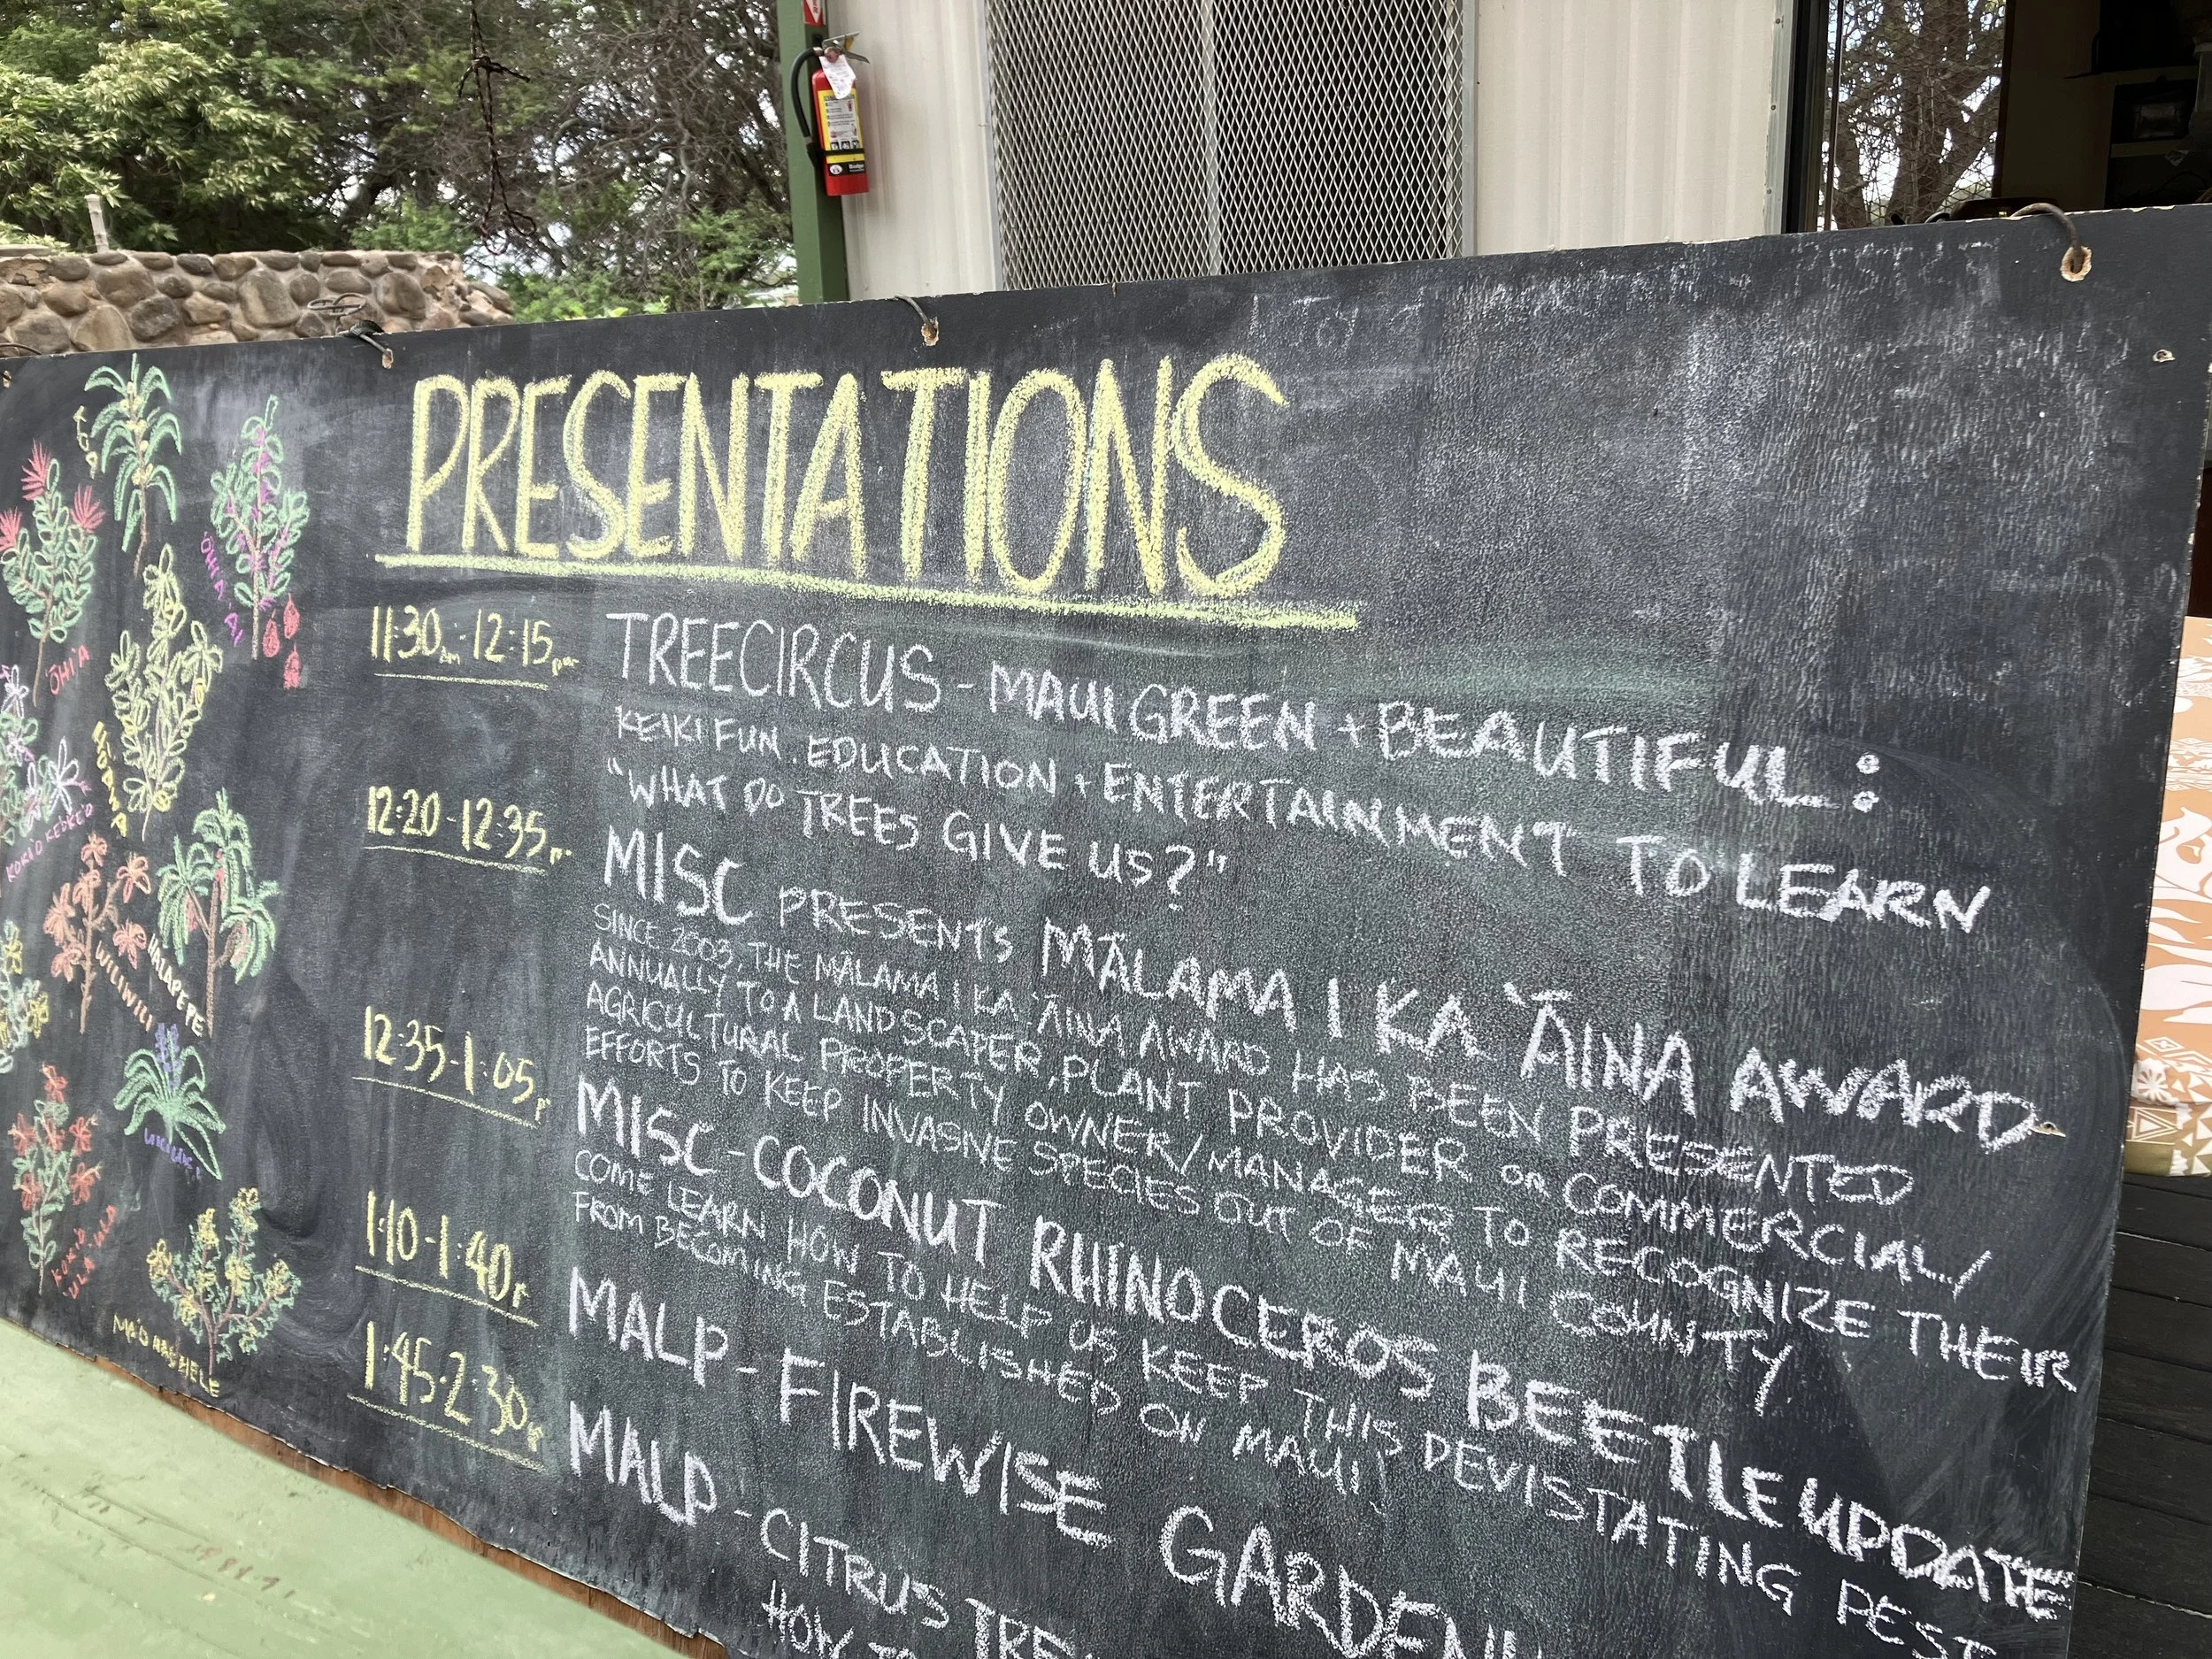 PRESENTATIONS
11:30AM-12:15PM
TREECIRCUS - MAUI GREEN + BEAUTIFUL:
KEIKI FUN. EDUCATION + ENTERTAINMENT TO LEARN
"WHAT DO TREES GIVE US?"
12:20-12:35P.
MISC PRESENTS MĀLAMA I KA ʻĀINA AWARD-
SINCE 2003, THE MĀLAMA I KA ʻĀINA AWARD HAS BEEN PRESENTED
ANNUALLY TO A LANDSCAPER, PLANT PROVIDER OR COMMERCIAL/
AGRICULTURAL PROPERTY OWNER/MANAGER TO RECOGNIZE THEIR
EFFORTS TO KEEP INVASIVE SPECIES OUT OF MAUI COUNTY
12:35-1:05P
MISC-COCONUT RHINOCEROS BEETLE UPDATE
COME LEARN HOW TO HELP US KEEP THIS DEVISTATING PEST
FROM BECOMING ESTABLISHED ON MAUI!
1:10-1:40P
MALP-FIREWISE GARDENI
1:45-2:30P
MALP-CITRUS TREE
HOW TO
ŌHIʻA
ŌHIʻA ʻAI
KOKIʻO KEʻOKEʻO
WILIWILI
HALAPEPE
KOKIʻO
ULAʻULA
MAʻO HAU HELE